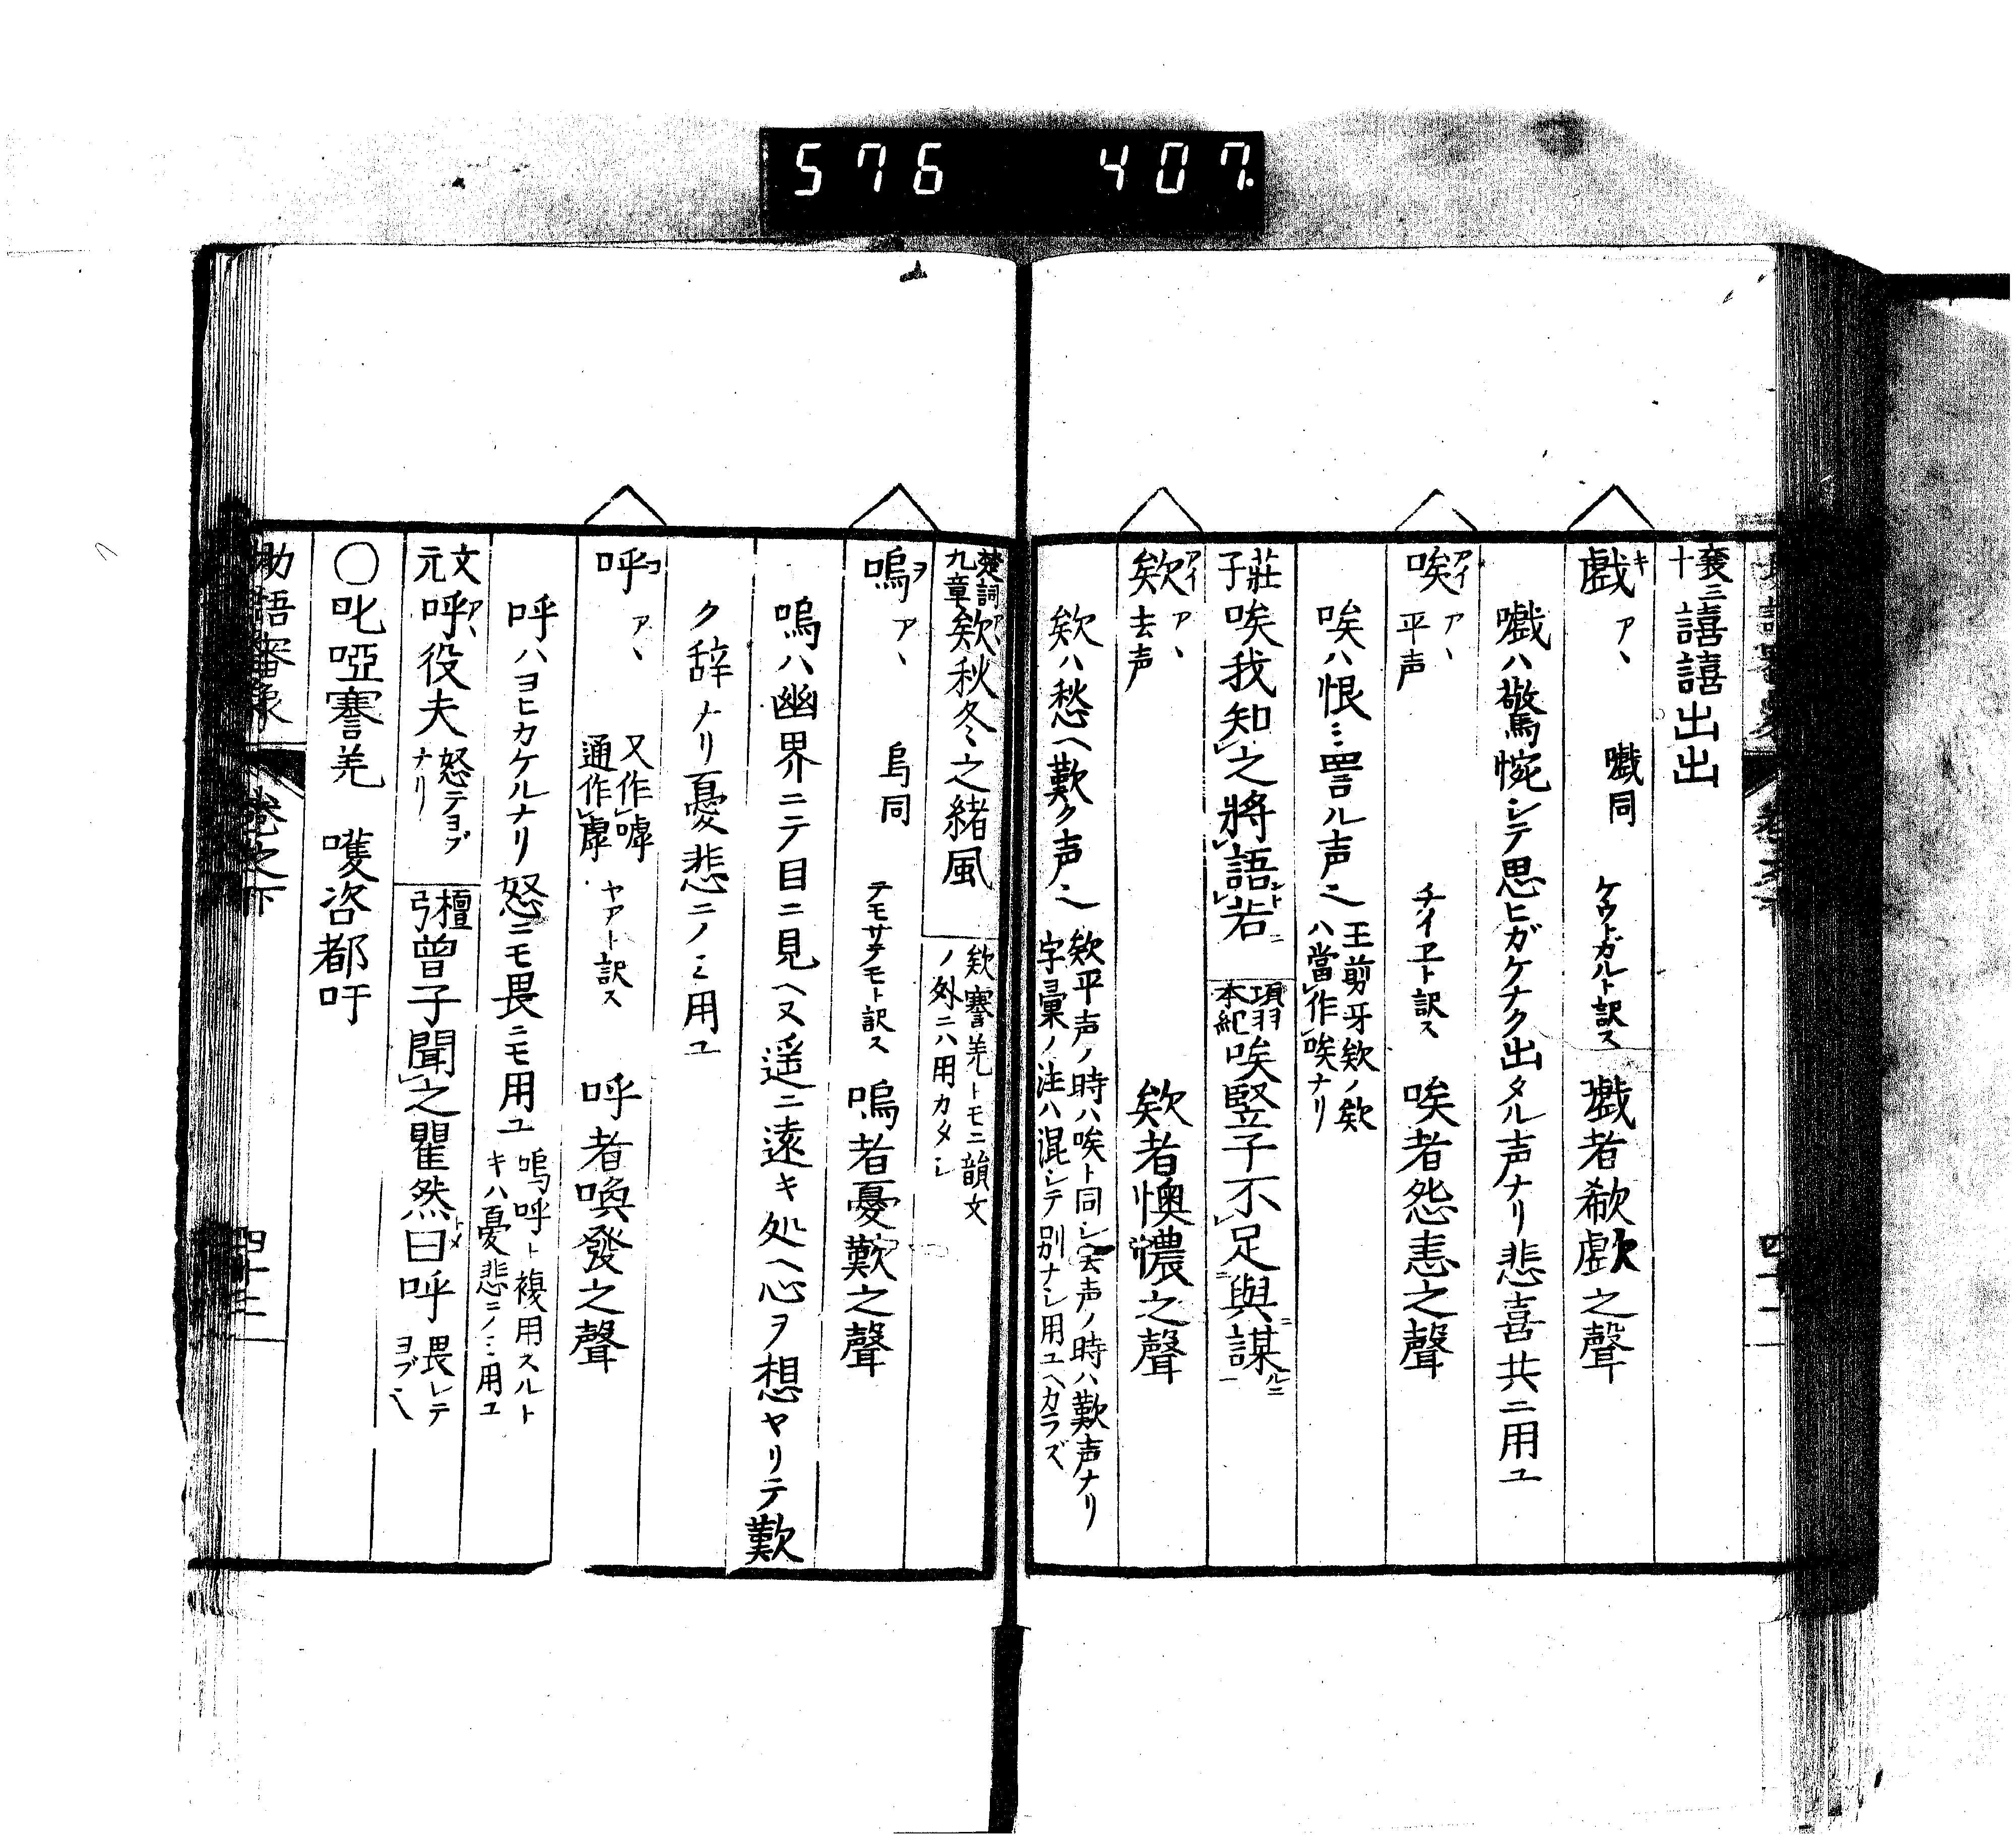 576 407.
襄三十譆譆出出
戲キ アヽ 嚱同 ケウトガルト訳ス 戲者欷歔之聲
嚱ハ驚惋シテ思ヒガケナク出タル声ナリ悲喜共ニ用ユ
唉アイ アヽ 平声 チイヱト訳ス 唉者怨恚之聲
唉ハ恨ミ詈ル声也 王剪牙欸ノ欸ハ當作唉ナリ
莊子唉我知之將語若 項羽本紀唉竪子不足與謀
欸アイ アヽ 去声 欸者懊憹之聲
欸ハ愁ヘ歎ク声也 欸平声ノ時ハ唉ト同シ去声ノ時ハ歎声ナリ字彙ノ注ハ混シテ別ナシ用ユヘカラズ
楚詞九章欸秋冬之緒風 欸謇羌トモニ韻文ノ外ニハ用カタシ
嗚ヲ アヽ 烏同 テモサテモト訳ス 嗚者憂歎之聲
嗚ハ幽界ニテ目ニ見ヘヌ遥ニ遠キ処ヘ心ヲ想ヤリテ歎
ク辞ナリ憂悲ニノミ用ユ
呼コ アヽ 又作嘑通作虖 ヤアト訳ス 呼者喚發之聲
呼ハヨヒカケルナリ怒ニモ畏ニモ用ユ 嗚呼ト複用スルトキハ憂悲ニノミ用ユ
文元呼役夫 怒テヨブナリ 檀弓曾子聞之瞿然曰呼 畏レテヨブ也
〇叱啞謇羌 嚄咨都吁
助語審象 巻之下 四十二